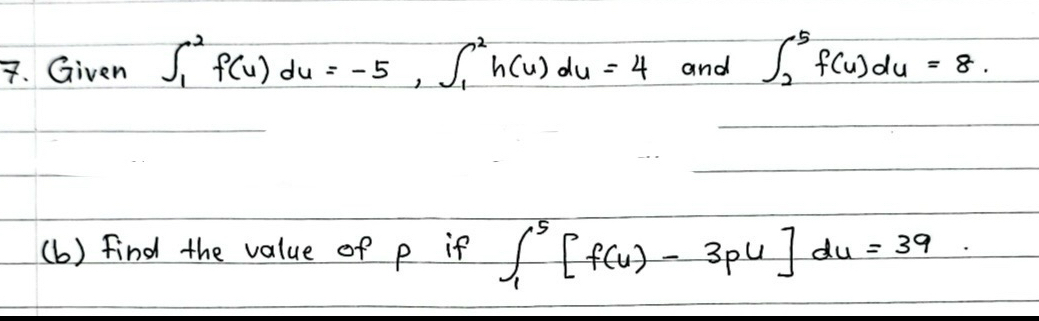 7. Given ∫₁² f(u) du = -5 , ∫₁² h(u) du = 4 and ∫₂⁵ f(u) du = 8 .
(b) Find the value of p if ∫₁⁵ [ f(u) - 3pu ] du = 39 .